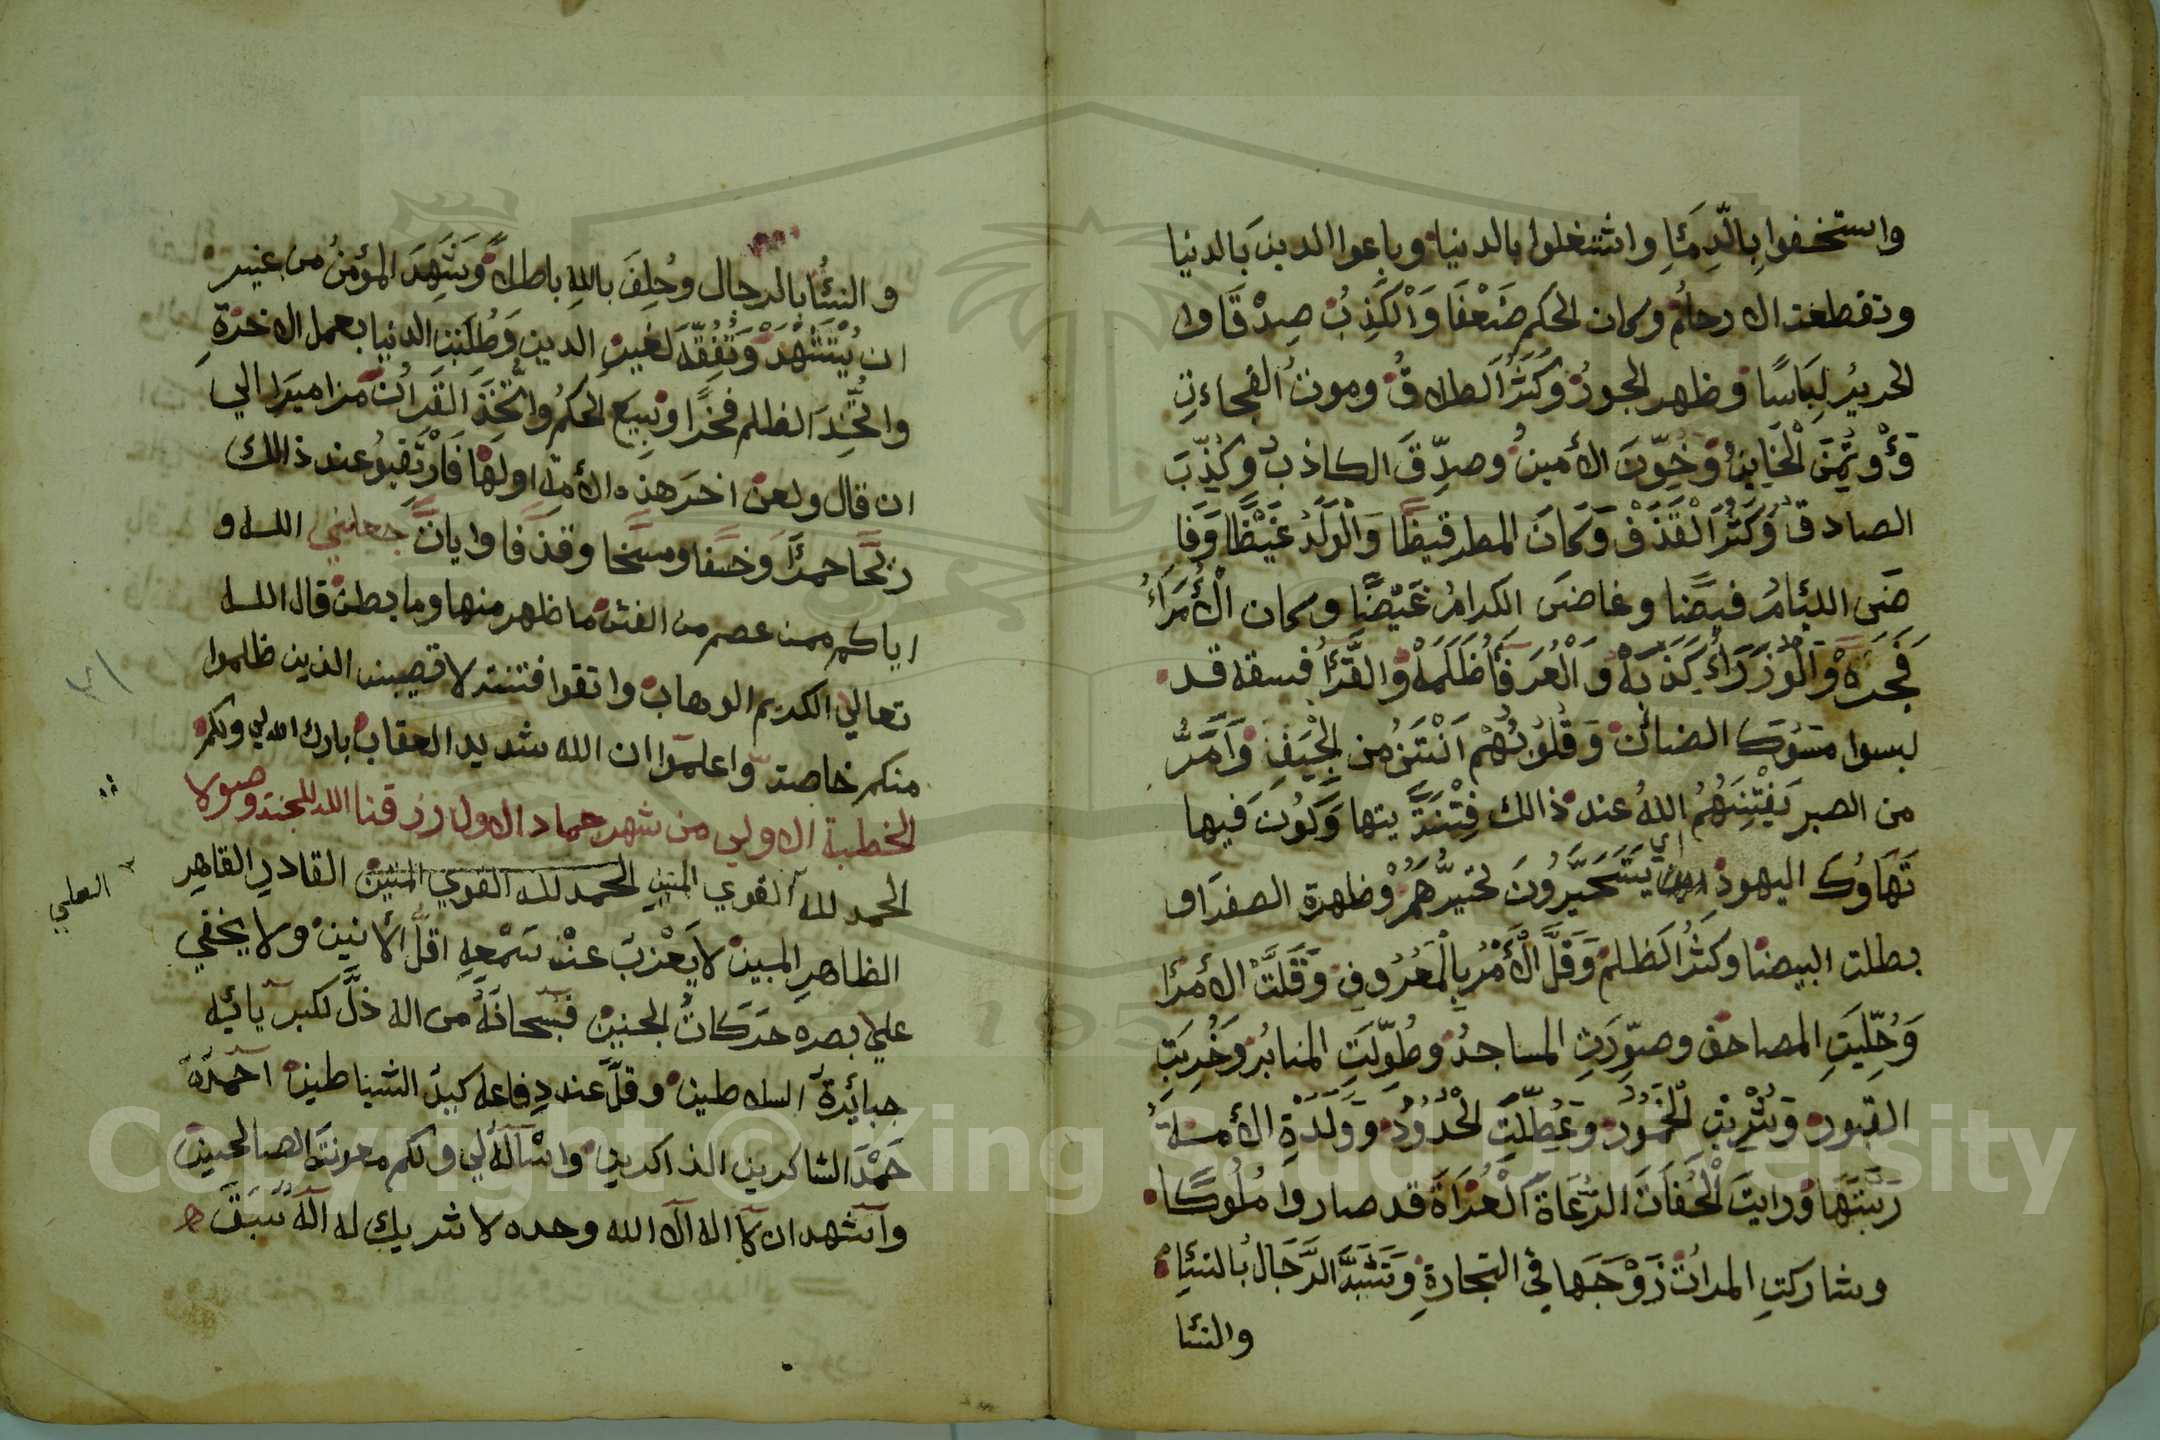 واستخفوا بِالدِّمَاِ واشتغلوا بالدنيا وباعوا الدين بالدنيا
وتقطعت الارحام وكان الحكم ضَعْفَا وَالْكَذِبُ صِدْقًا وا
لحرير لِبَاسًا وظهر الجور وَكَثُرَ الطلاق وموتُ الفجاءتِ
وَؤْتُمِنَ الْخَاينُ وَخُوِّنَ الأمين وصدِّقَ الكاذب وكُذِّبَ
الصادق وَكَثُرَ الْقَذَفْ وَكَانَ المطر قيظًا وَالْوَلَدُ غَيْظًا وَفَا
ضَى اللئامُ فيضًا وغاضَى الكرامُ غَيْضًا وكان الْأُمَرَاءُ
فَجَرَةْ وَالْوُزَرَاءُ كَذَبَةْ وَالْعُرَفَاُ ظَلَمَةْ وَالقُرَّاُ فسقه قد
لبسوا مسُوكَ الضائن وَقُلُوبُهُمْ اَنْتَنُ من الْجِيَفَِ وَاَمَرُّ
من الصبر يَفْتِنِهُمُ اللهُ عند ذالك فِتْنَةً يتها وَكُونَ فيها
تَهَاوُكَ اليهود اي يَتَحَيَّرُونَ تحيرُّهُمْ وظهرة الصفرا و
بطلت البيضا وكثُرَ الظلم وَقَلَّ الْأَمْرُ بِالْمَعْرُوفِ وَقَلَّتْ الأمرَا
وَحُلِّيَتِ المصاحف وصوِّرَتِ المساجدُ وطُوِّلَتِ المنابرُ وَخُرِبَتِ
القبور وَشُرِبَتِ الْخُمُورُ وَعُطِّلَتِ الْحُدُودُ وَوَلَدَةِ الأمــةُ
رَبَّتَهَا ورايتَ الْحُفَاتَ الرُّعَاةَ الْعُرَاةَ قد صاروا مُلُوكًا
وشاركتِ المراتُ زَوْجَهَا في التجارةِ وَتَشَبَّهَ الرِّجَالُ بالنساِ
والنسا
والنِسُا بالرجال وحُلِفَ باللهِ باطلا وَشَهِدَ المؤمنُ من غير
ان يُسْتَشْهَدْ وَتُفُقِّهَ لغير الدين وَطُلِبَتِ الدنيا بعمل الاخرةِ
واتُّخِذَ الظلم فخرًا وبيعَ الحكمُ واتُّخِذَ القرانُ مزاميرا الي
ان قال ولعن اخرَ هذه الأمة اولهَا فَارْتَقِبُوُ عند ذالك
ريحًا حمرًا وَخسفًا ومسخا وقذفا وايات جعلني اللــه و
اياكم ممن عصم من الفتن ما ظهر منها وما بطن قال اللــه
تعالي الكريم الوهاب واتقوا فتنة لا تصيبن الذين ظلموا
منكم خاصة واعلموا ان الله شديد العقاب بارك الله لي ولكم
الخطبة الاولي من شهر جماد الاول رزقنا الله الجنة وصولا
الحمد لله القوي المتين الحمد لله القوي المتين القادرِ القاهِرِ
العلي
الظاهرِ المبين لا يَعْزبُ عَنْ سَمْعِهِ اقلُّ الأنين ولا يخفي
علي بصره حركاتُ الجنين فسبحانَهُ من اله ذلَّ لكبريائه
جبابرةُ السلاطين وقلَّ عند دِفاعه كيدُ الشياطين احمدُهُ
حَمْدَ الشاكرين الذاكرين واسْألهُ لي ولكم معونتَ الصالحين
واشهد ان لا اله الا الله وحده لا شريك له الهٌ سَبَقَ